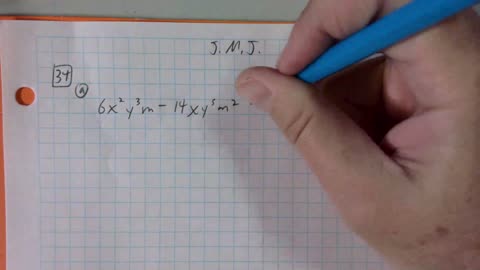 J. M. J.
34
a
6x²y³m - 14xy⁵m²